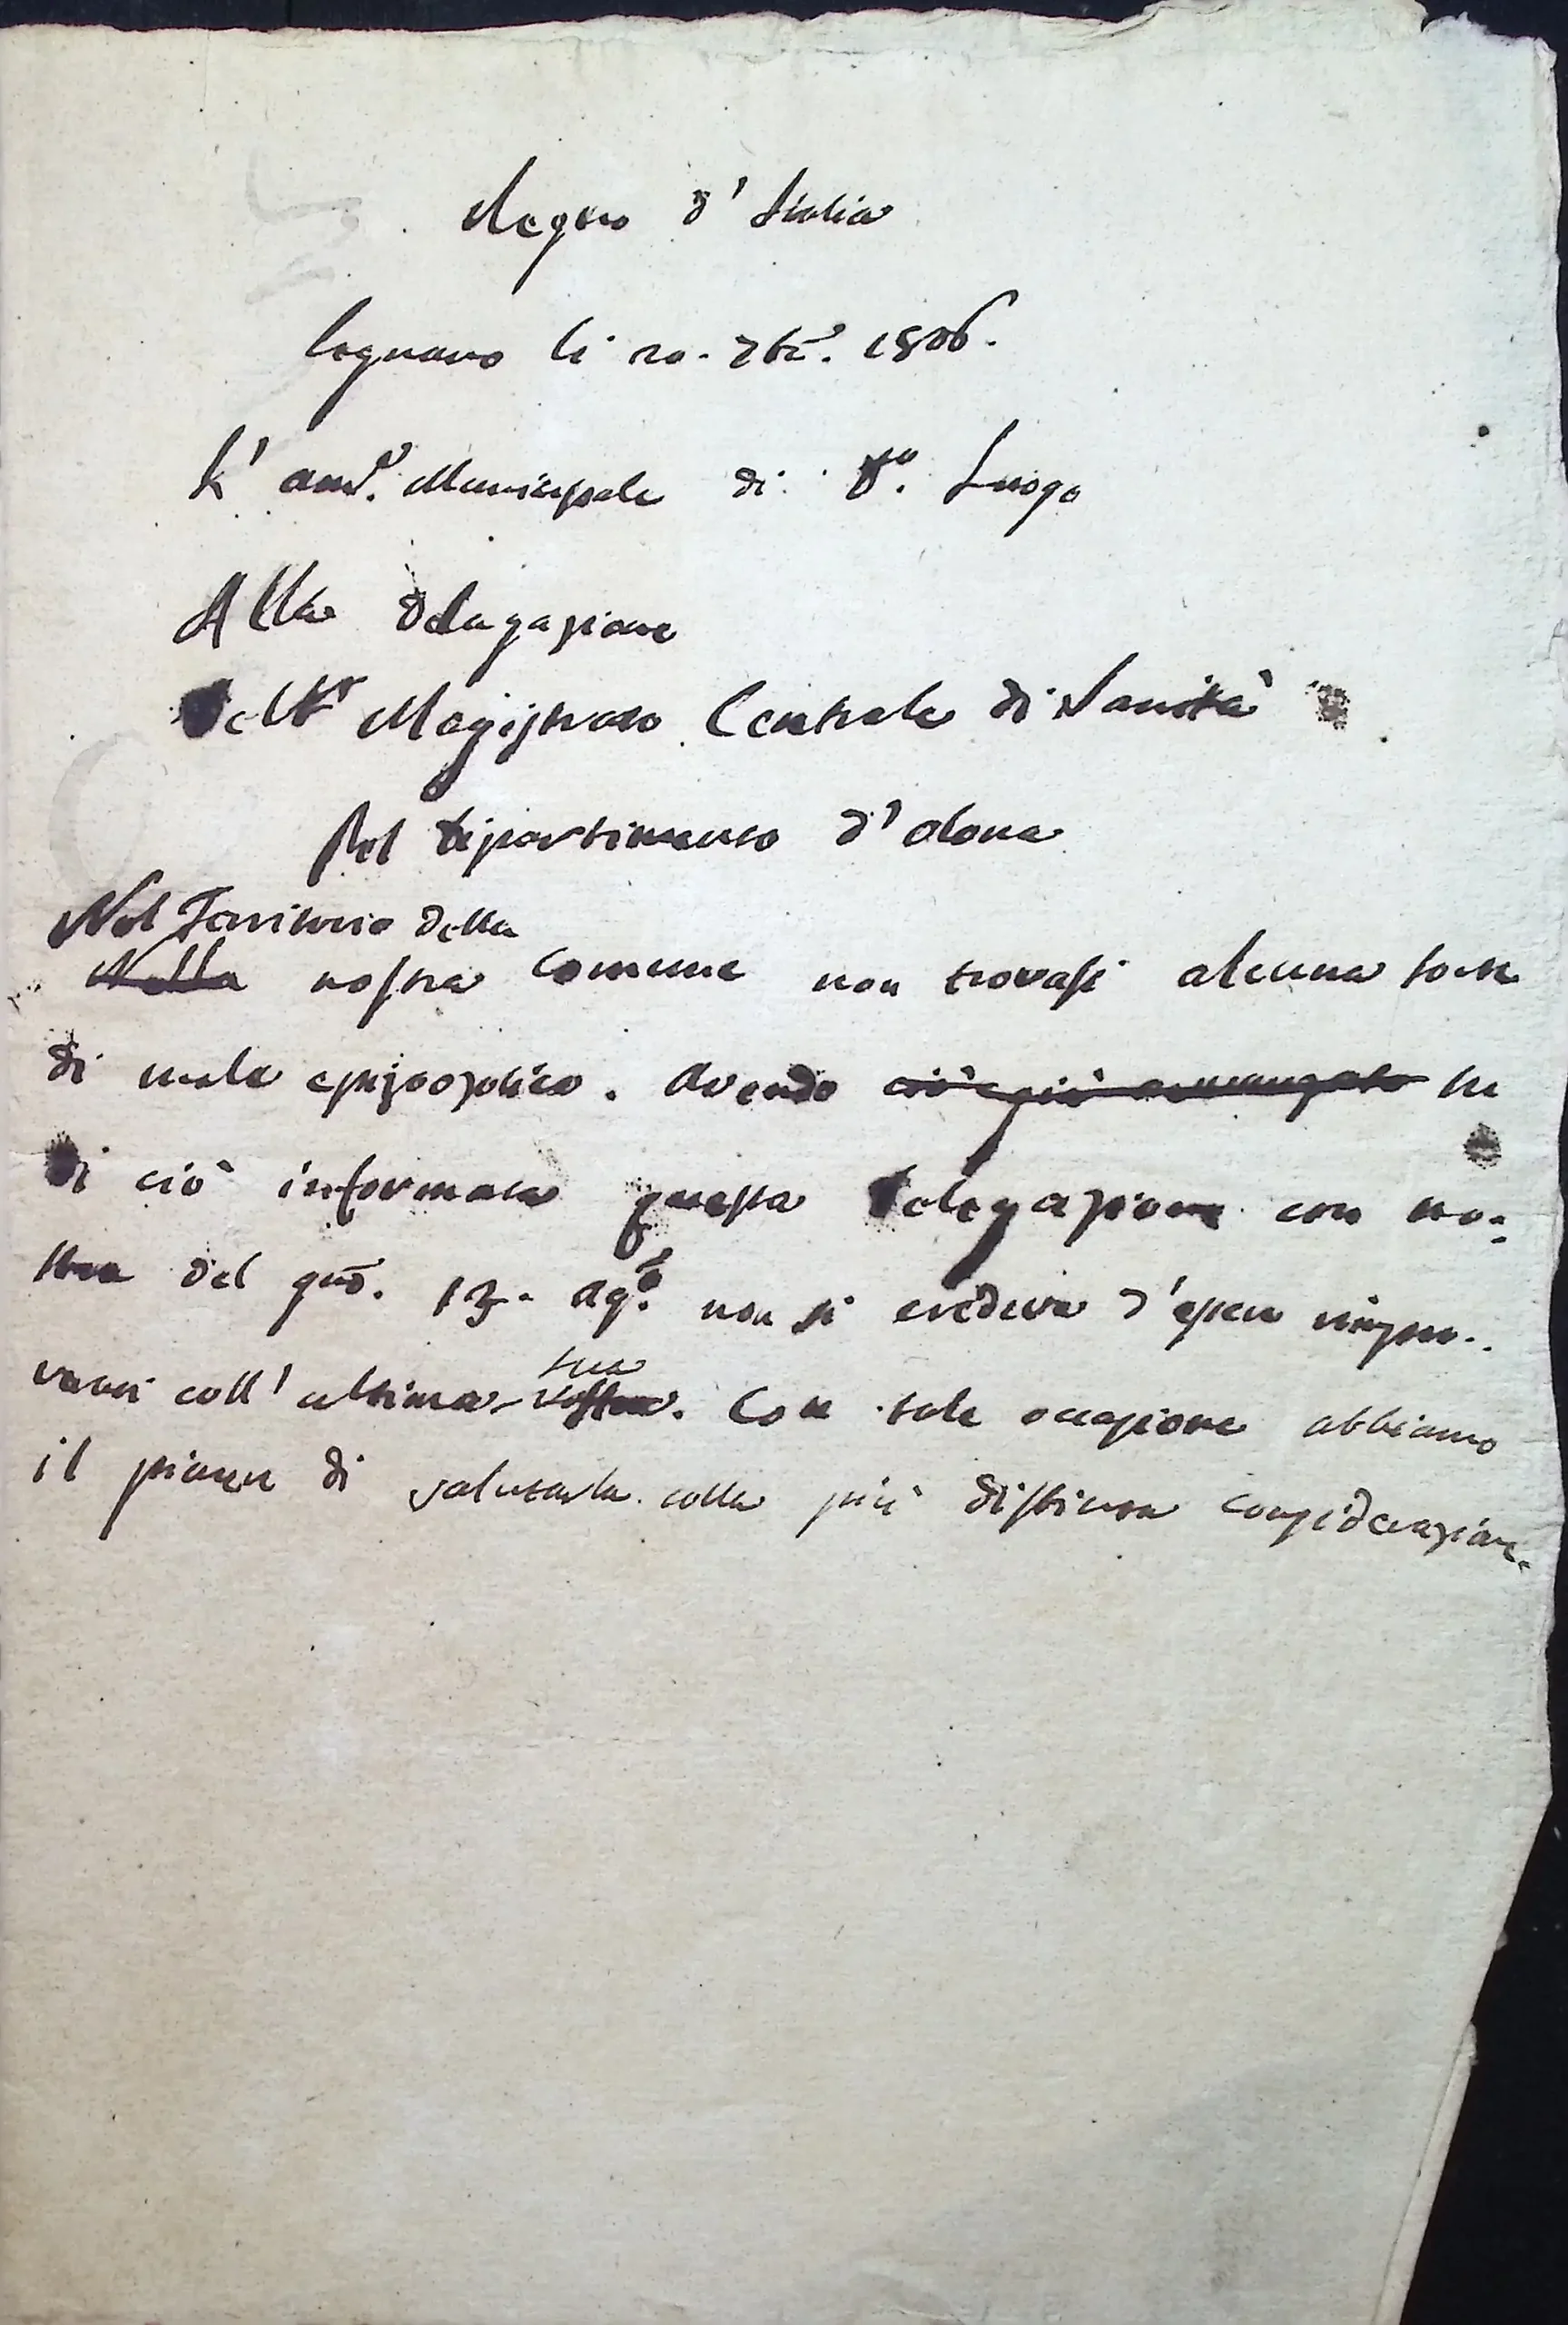 Regno d' Italia
Legnano li 20. 7bre. 1806.
L' ame. Municipale di do. Luogo
Alla Delegazione
del Magistrato Centrale di Sanità
Pel dipartimento d' olona
Nel Territorio della
Nella nostra Comune non trovasi alcuna sorte
di male epizoozotico. Avendo ciò già
di ciò informata questa delegazione con no=
stra del gno. 13. ago. non si credeva d' essere
coll' ultima sua vostra. Con tale occasione abbiamo
il piacere di salutarla colla più distinta considerazione.